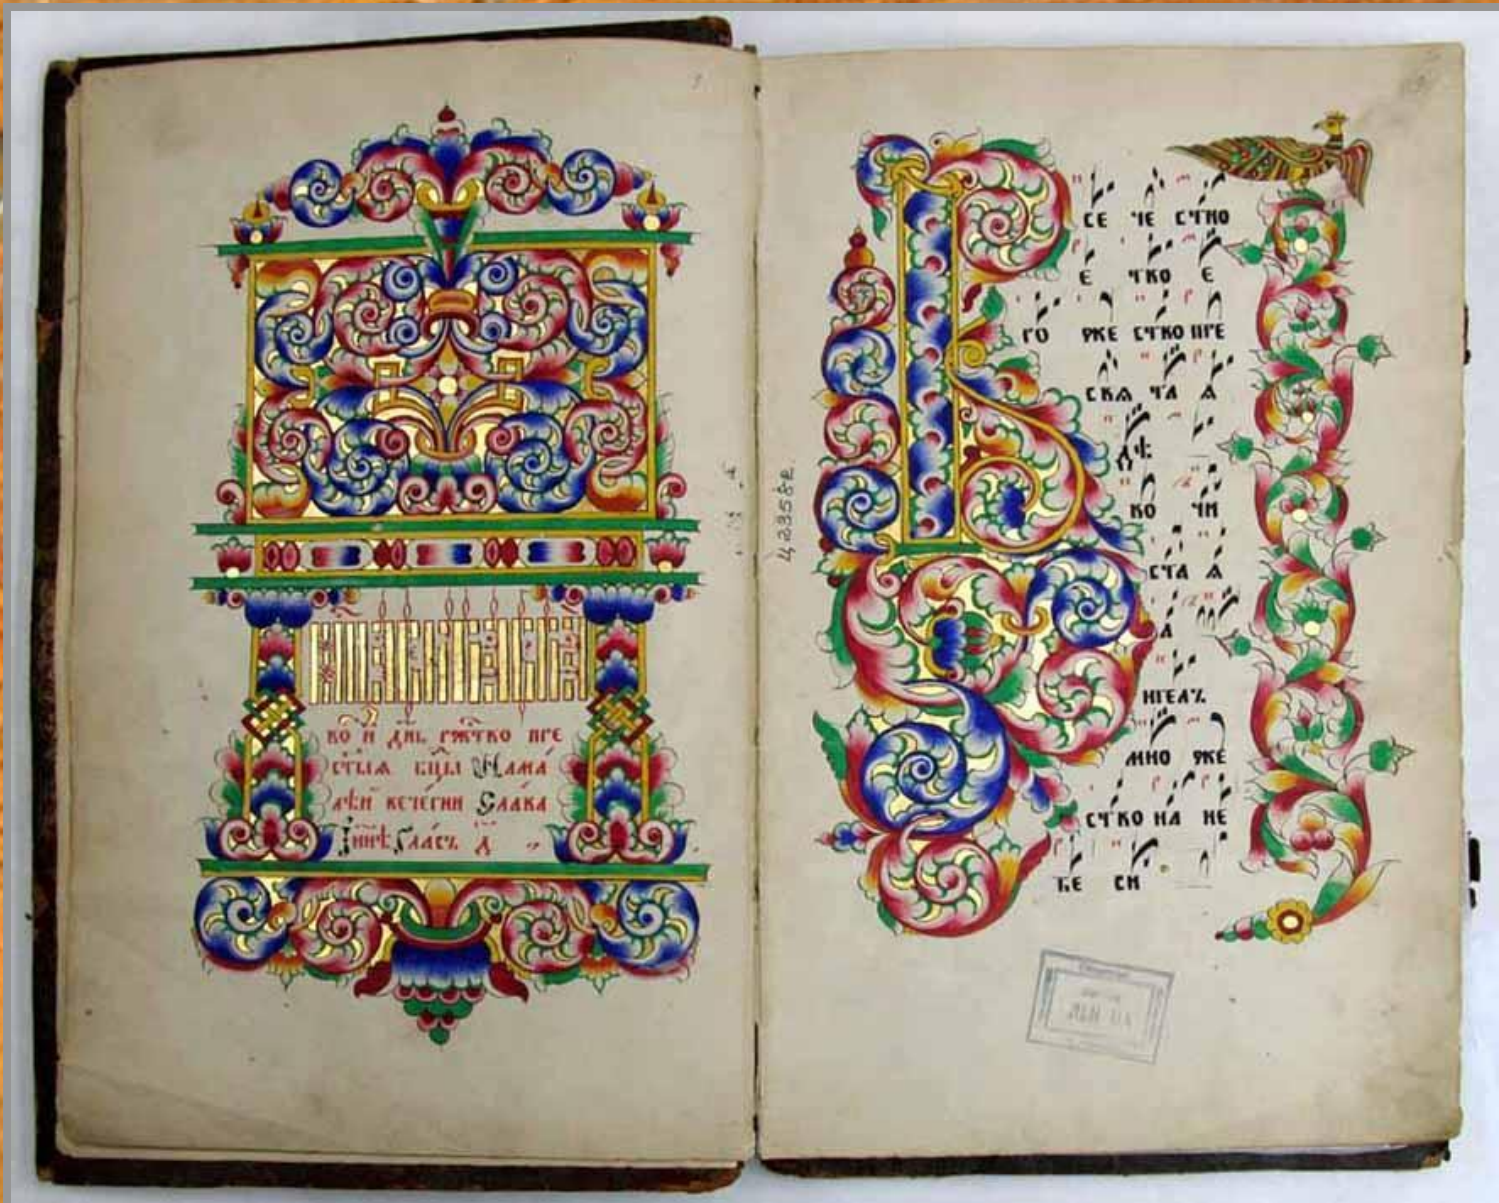 во и҃ дн҃ь рж҃тво пре
ст҃ыѧ бц҃ы На ма́
лѣй вече́рни Сла́ва
И нн҃ѣ Гла́съ д҃
В
СЕ ЧЕ СТНО
Е ТВО Е
РО ЖЕ СТВО ПРЕ
СВѦ ТА Ѧ
ДѢ
ВО ЧИ
СТА Ѧ
А
НГЕЛЪ
МНО ЖЕ
СТВО НА НЕ
БЕ СИ